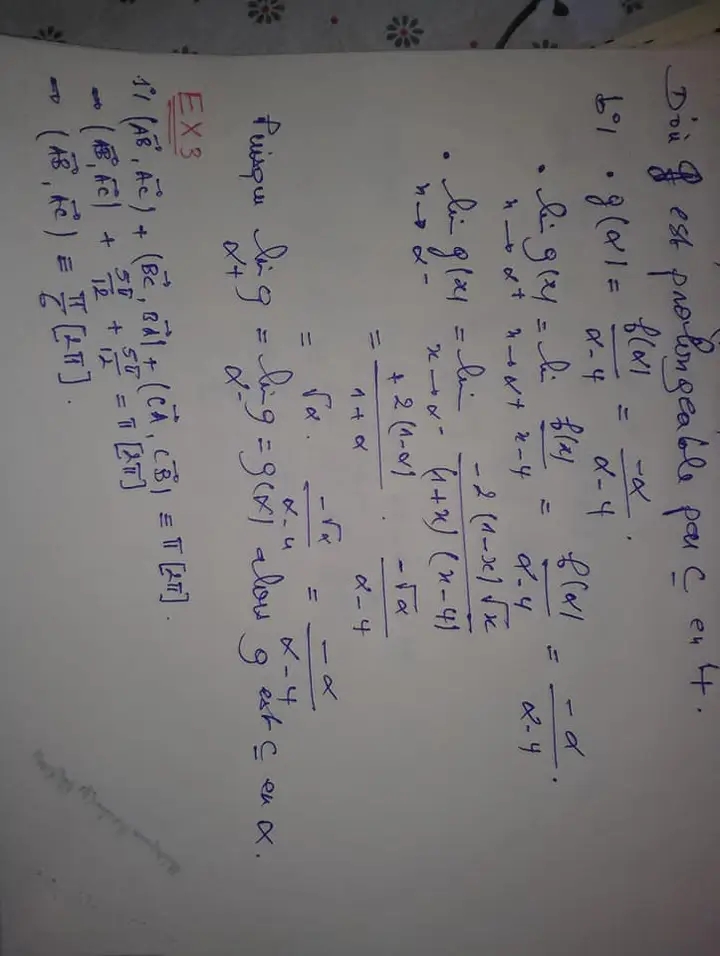 D'où g est prolongeable par C en 4.
b°/ • g(α) = f(α)/(α-4) = -α/(α-4).
• lim g(x) x→α+ = lim x→α+ f(x)/(x-4) = f(α)/(α-4) = -α/(α-4).
• lim g(x) x→α- = lim x→α- -2(1-x)√x / (1+x)(x-4)
= +2(1-α)/(1+α) . -√α/(α-4)
= √α . -√α/(α-4) = -α/(α-4)
Puisque lim g α+ = lim g α- = g(α) alors g est C en α.
EX3
1°/ (AB, AC) + (BC, BA) + (CA, CB) ≡ π [2π].
→ (AB, AC) + 5π/12 + 5π/12 = π [2π]
→ (AB, AC) ≡ π/6 [2π].